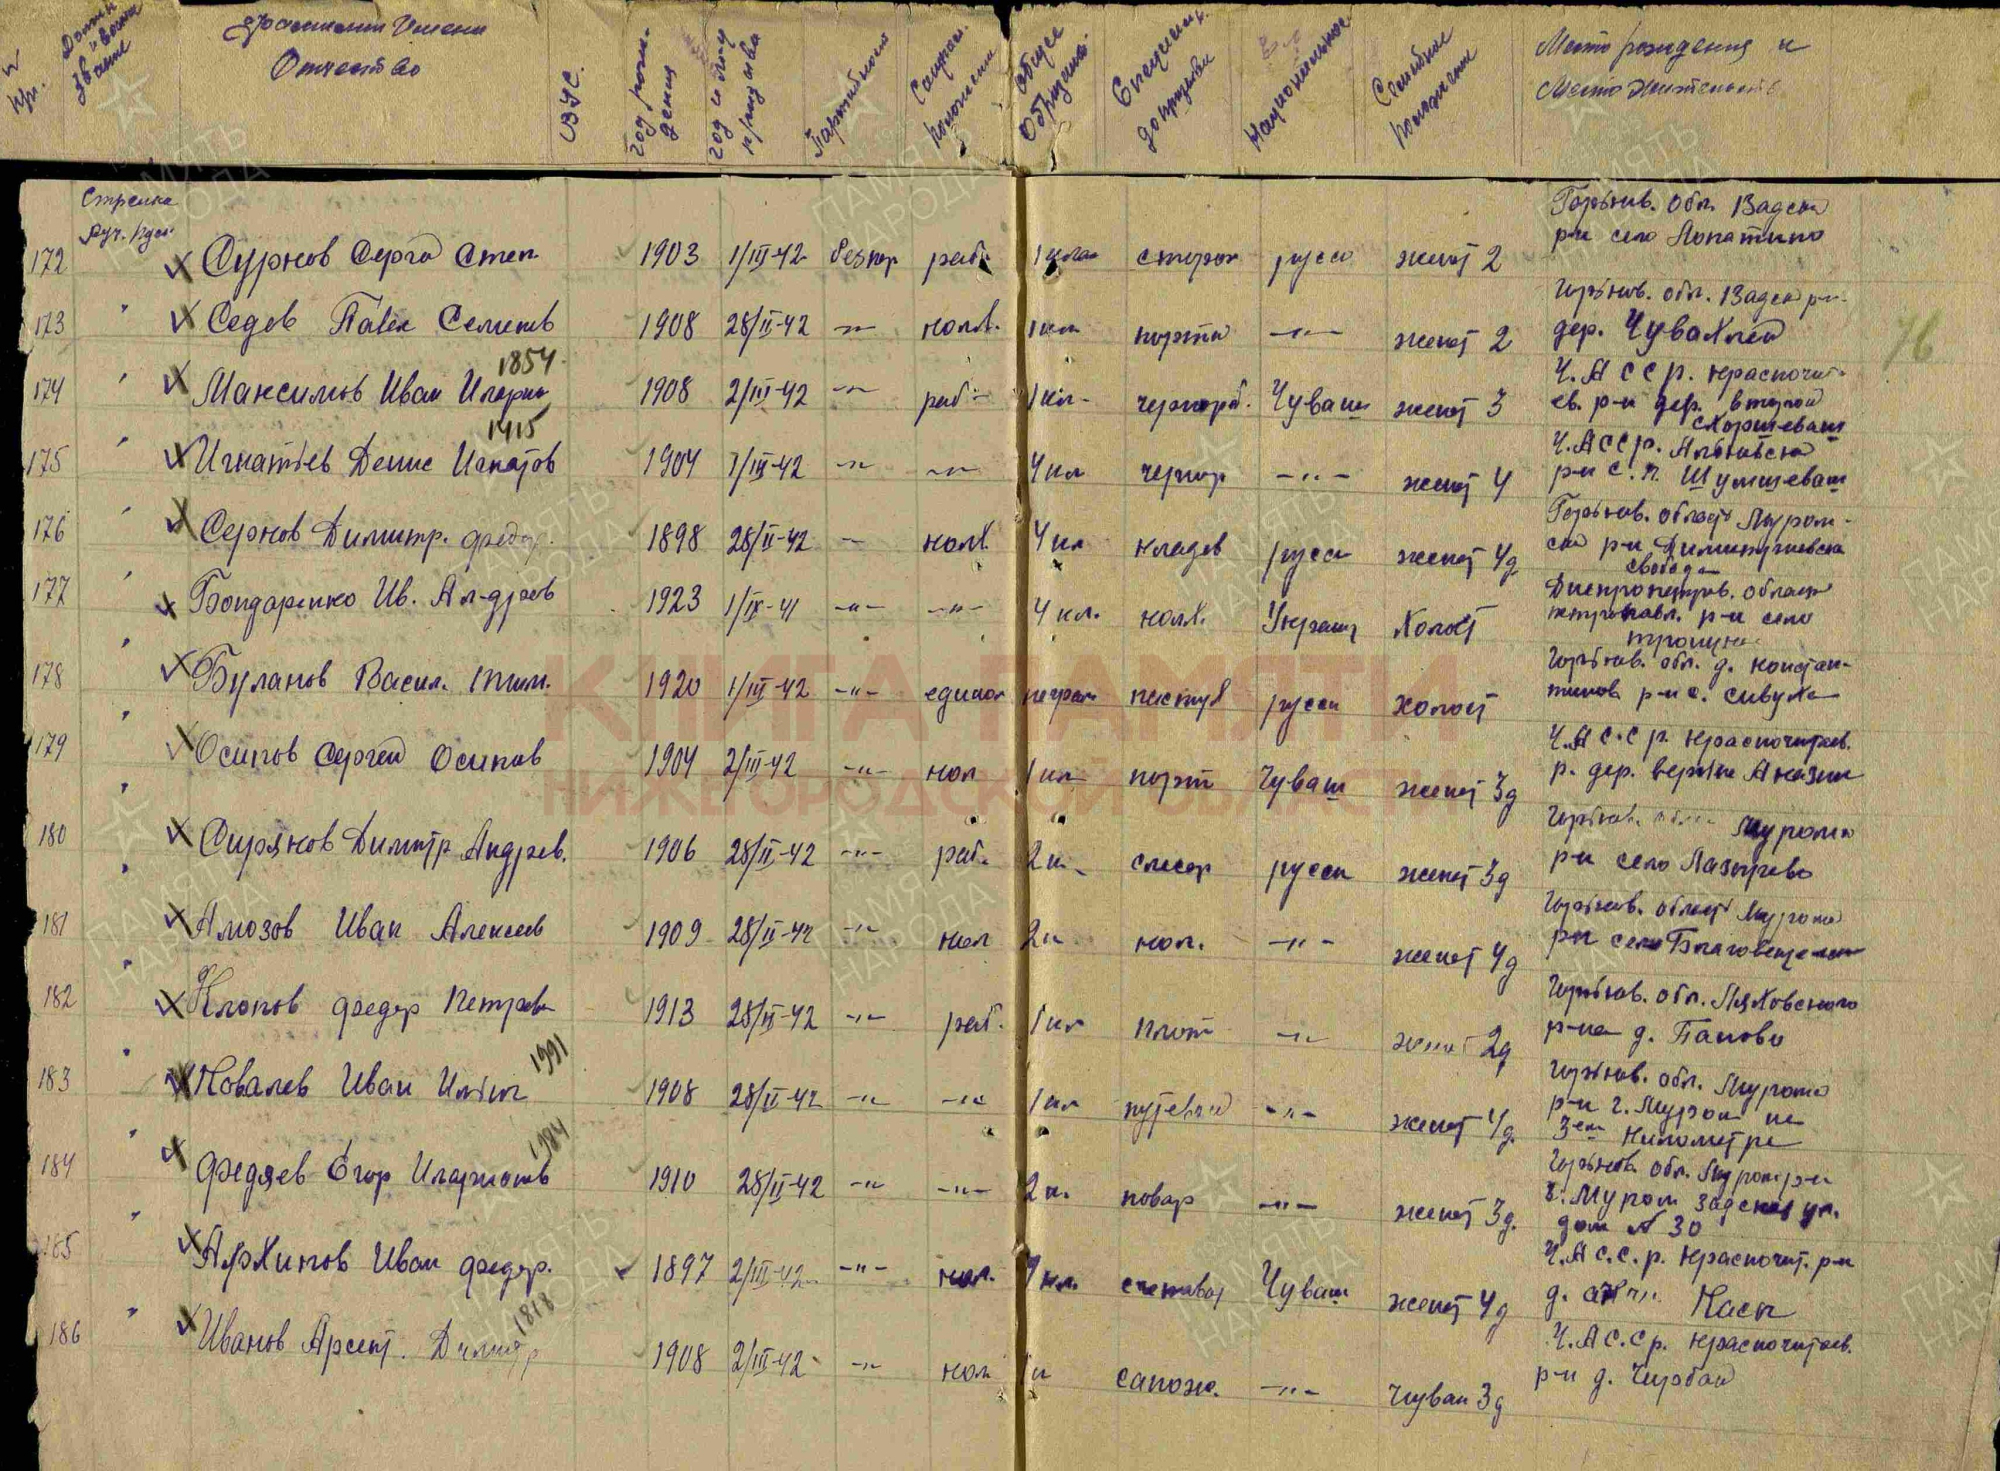 Фамилия Имя
Отчество
В.У.С.
год рож-
дения
год и м-ц
призыва
Партийность
Соцпол.
положение
Общее
Образов.
Специальн.
до призыва
Национальность
Семейное
положение
Место рождения и
Место жительств
Стрелка
172 Сурнов Серге Степ 1903 1/III-42 беспар раб. 1 клас сторож русс женат 2
Горьков. обл. Вадски
р-н село Лопатино
173 " Седов Павел Семенов 1908 28/II-42 -"- колх. 1 кл портн -"- женат 2
Горьков. обл. Вадск р-н.
дер. Чувахлей
1854
174 " Максимов Иван Иларио 1908 2/III-42 -"- раб- 1 кл- чернораб. Чуваш женат 3
Ч.А С С р. Красночит-
ев. р-н дер. второй
Хоршеваш
1415
175 " Игнатьев Денис Игнатов 1904 1/III-42 -"- -"- 4 кл чернор -"- женат 4
Ч.АССр. Аликовски
р-н с.п. Шумшеваш
176 " Сернов Димитр. Федор. 1898 28/II-42 - колх. 4 кл кладов русск женат 4д
Горьков. област Муром-
ски р-н Димитриевска
свобода
177 " Бондаренко Ив. Ал-дров 1923 1/IX-41 -"- -"- 4 кл. колх. Украин холост
Днепропетров. област
петропавл. р-н село
178 " Буланов Васил. Тим. 1920 1/III-42 -"- единол неграм пастух русск холост
Горьков. обл. д. констан-
тинов р-н с. сивуха
179 " Осипов Сергей Осипов 1904 2/III-42 -"- кол 1 кл портн Чуваш женат 3д
Ч.А С.С р. Красночитаев.
р. дер. верхне Аказин
180 " Сирянов Димитр Андреев. 1906 28/II-42 -"- раб. 2 к. слесар русск женат 3д
Горьков. обл. Муромс
р-н село Лазарево
181 " Амозов Иван Алексеев 1909 28/II-42 -"- кол 2 к кол. -"- женат 4д
Горьков. област Муромс
р-н село Благовещенск
182 " Клопов Федор Петров 1913 28/II-42 -"- раб. 1 кл плот -"- женат 2д
Горьков. обл. Ляховского
р-на д. Паново
1991
183 " Ковалев Иван Ильич 1908 28/II-42 -"- -"- 1 кл путевой -"- женат 4д.
Горьков. обл. Муромс
р-н г. Муром на
3ем километре
1984
184 " Федяев Егор Иларионов 1910 28/II-42 -"- -"- 2 к. повар -"- женат 3д.
Горьков. обл. Муром р-н
г. Муром ул.
дом № 30
185 " Архипов Иван Федор. 1897 2/III-42 -"- кол. кл. счетовод Чуваш женат 4д
Ч.А С.С.р. Красночит. р-н
д.
1818
186 " Иванов Арсент. Димитр 1908 2/III-42 -"- кол 1 к сапож. -"- чуваш 3д
Ч.А С.С р. Красночитаев.
р-н д.
76
КНИГА ПАМЯТИ
НИЖЕГОРОДСКОЙ ОБЛАСТИ
ПАМЯТЬ
НАРОДА